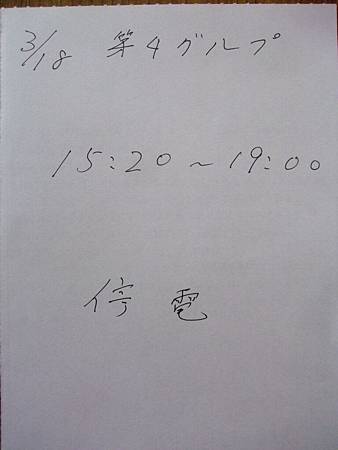 3/18 第4グルプ
15:20～19:00
停電